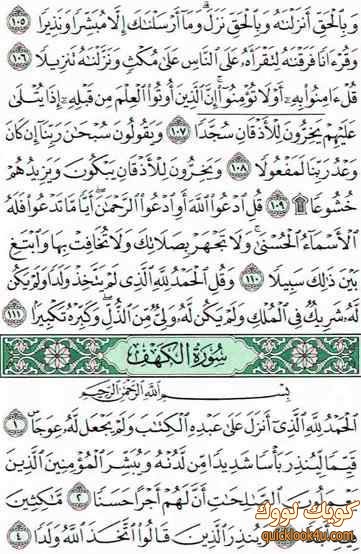 وَبِٱلْحَقِّ أَنزَلْنَٰهُ وَبِٱلْحَقِّ نَزَلَ ۗ وَمَآ أَرْسَلْنَٰكَ إِلَّا مُبَشِّرًا وَنَذِيرًا ١٠٥
وَقُرْءَانًا فَرَقْنَٰهُ لِتَقْرَأَهُۥ عَلَى ٱلنَّاسِ عَلَىٰ مُكْثٍ وَنَزَّلْنَٰهُ تَنزِيلًا ١٠٦
قُلْ ءَامِنُوا۟ بِهِۦٓ أَوْ لَا تُؤْمِنُوٓا۟ ۚ إِنَّ ٱلَّذِينَ أُوتُوا۟ ٱلْعِلْمَ مِن قَبْلِهِۦٓ إِذَا يُتْلَىٰ
عَلَيْهِمْ يَخِرُّونَ لِلْأَذْقَانِ سُجَّدًا ١٠٧ وَيَقُولُونَ سُبْحَٰنَ رَبِّنَآ إِن كَانَ
وَعْدُ رَبِّنَا لَمَفْعُولًا ١٠٨ وَيَخِرُّونَ لِلْأَذْقَانِ يَبْكُونَ وَيَزِيدُهُمْ
خُشُوعًا ۩ ١٠٩ قُلِ ٱدْعُوا۟ ٱللَّهَ أَوِ ٱدْعُوا۟ ٱلرَّحْمَٰنَ ۖ أَيًّا مَّا تَدْعُوا۟ فَلَهُ
ٱلْأَسْمَآءُ ٱلْحُسْنَىٰ ۚ وَلَا تَجْهَرْ بِصَلَاتِكَ وَلَا تُخَافِتْ بِهَا وَٱبْتَغِ
بَيْنَ ذَٰلِكَ سَبِيلًا ١١٠ وَقُلِ ٱلْحَمْدُ لِلَّهِ ٱلَّذِى لَمْ يَتَّخِذْ وَلَدًا وَلَمْ يَكُن
لَّهُۥ شَرِيكٌ فِى ٱلْمُلْكِ وَلَمْ يَكُن لَّهُۥ وَلِىٌّ مِّنَ ٱلذُّلِّ ۖ وَكَبِّرْهُ تَكْبِيرًۢا ١١١
سُورَةُ الكَهْفِ
بِسْمِ ٱللَّهِ ٱلرَّحْمَٰنِ ٱلرَّحِيمِ
ٱلْحَمْدُ لِلَّهِ ٱلَّذِىٓ أَنزَلَ عَلَىٰ عَبْدِهِ ٱلْكِتَٰبَ وَلَمْ يَجْعَل لَّهُۥ عِوَجَا ۜ ١
قَيِّمًا لِّيُنذِرَ بَأْسًا شَدِيدًا مِّن لَّدُنْهُ وَيُبَشِّرَ ٱلْمُؤْمِنِينَ ٱلَّذِينَ
ٱلصَّٰلِحَٰتِ أَنَّ لَهُمْ أَجْرًا حَسَنًا ٢ مَّٰكِثِينَ
وَيُنذِرَ ٱلَّذِينَ قَالُوا۟ ٱتَّخَذَ ٱللَّهُ وَلَدًا ٤
كويك لووك
quicklook4u.com